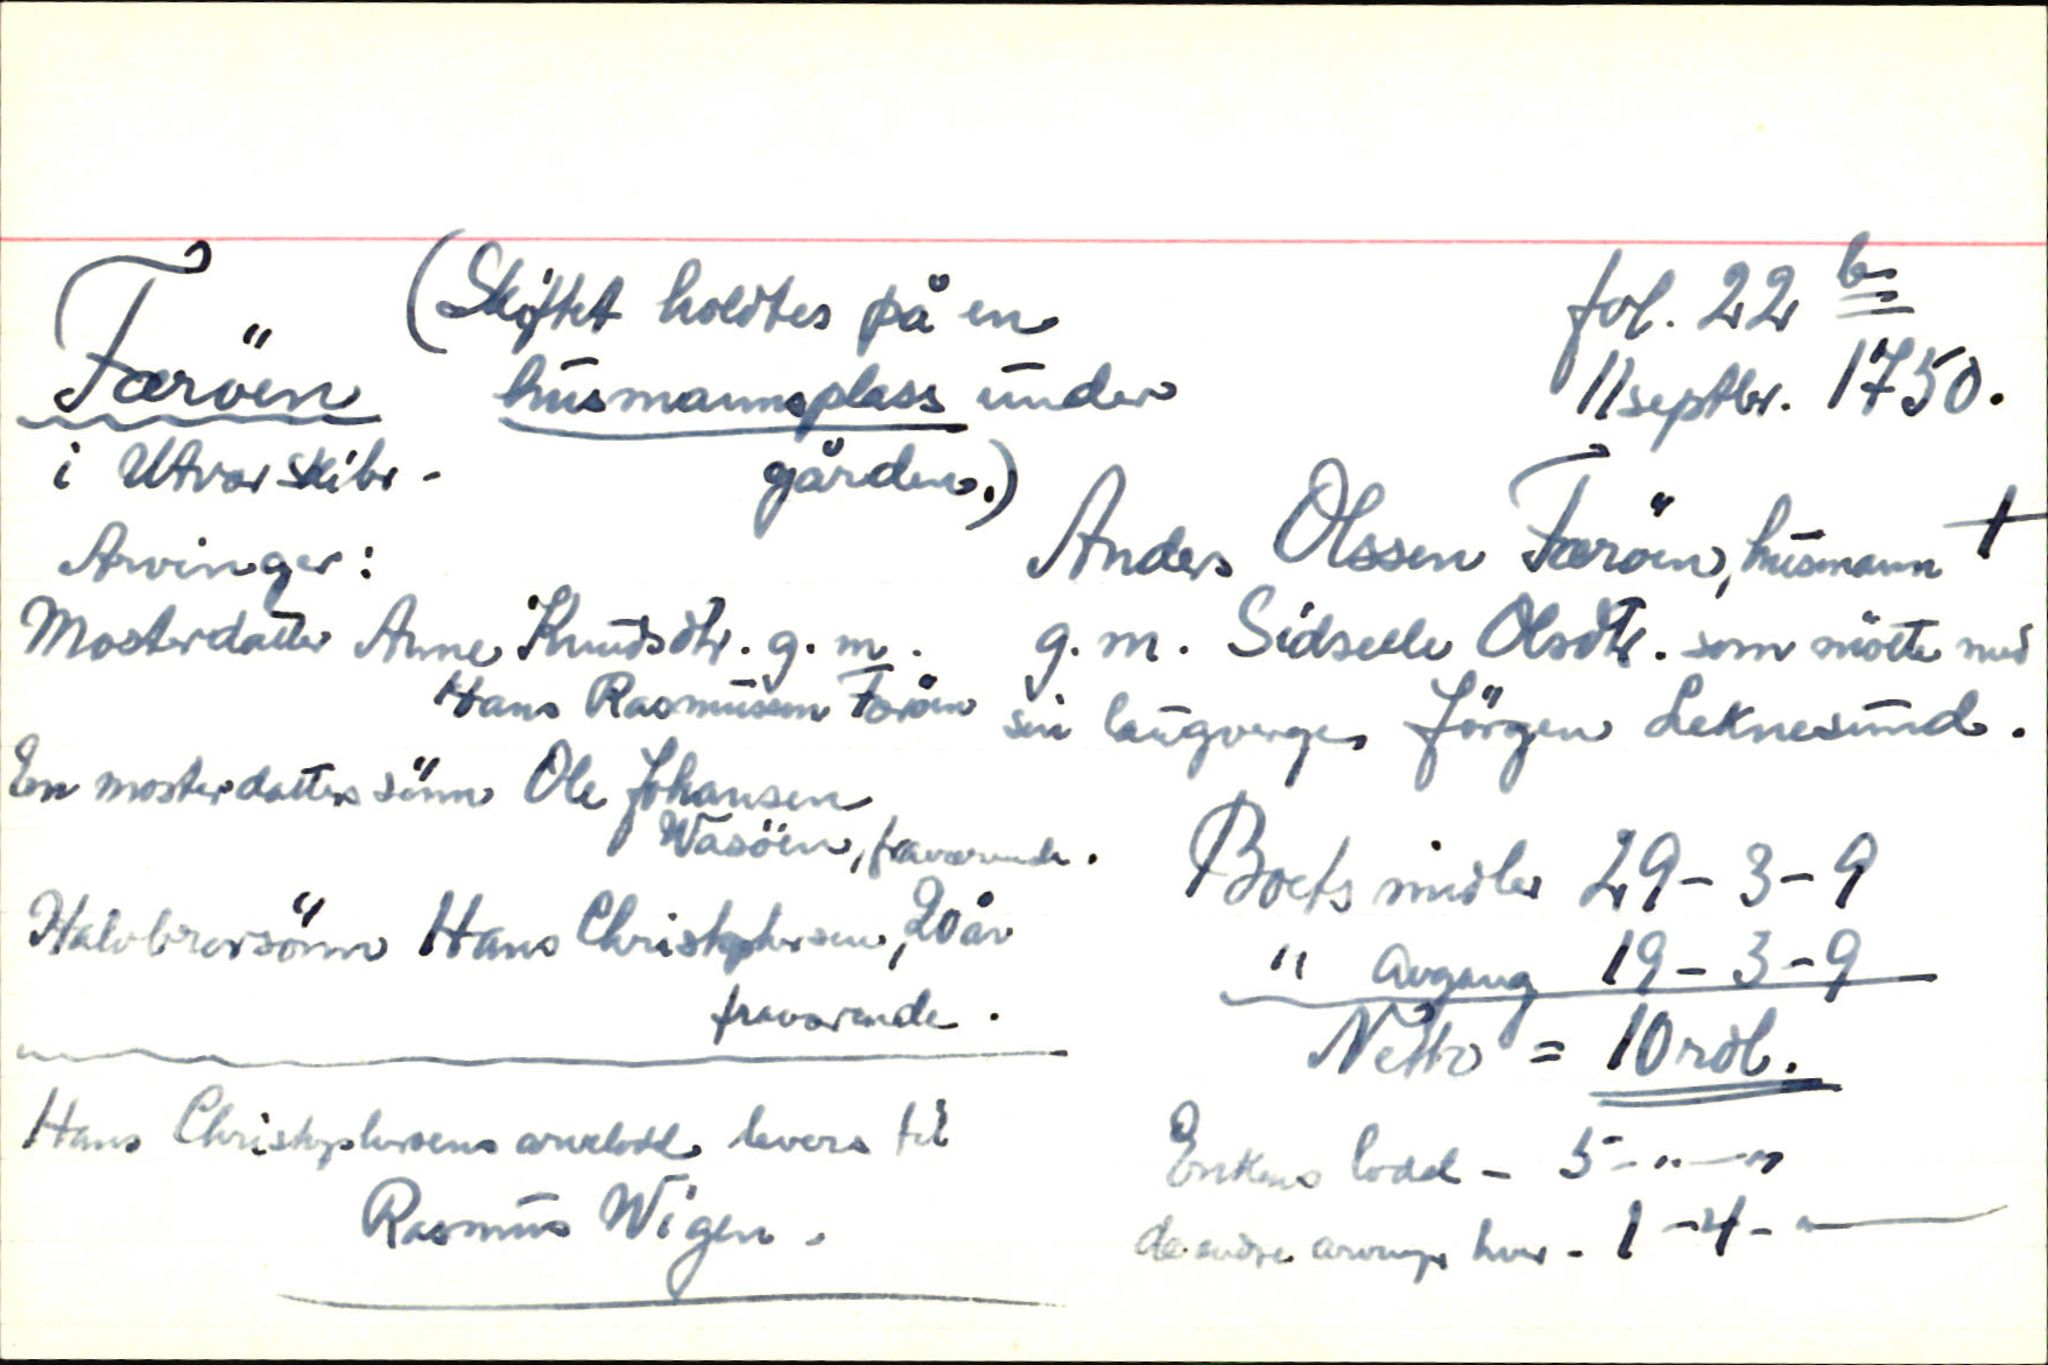 Færöen (Skiftet holdtes på en
husmannsplass under
gården.)
i Utvær skibr -
fol. 22 b
11 septbr. 1750.
Anders Olssen Færöen, husmann †
g. m. Sidselle Olsdtr. som mötte med
sin laugverge, Jörgen Leknesund.
Arvinger:
Mosterdatter Anne Knudsdtr. g. m.
Hans Rasmussen Færöen
En mosterdatters sönn Ole Johansen
Wasöen, fraværende.
Halvbrorsönn Hans Christophersen, 20 år
fraværende.
Hans Christophersens arvelodd levers til
Rasmus Wigen.
Boets midler 29 - 3 - 9
" Avgang 19 - 3 - 9
Netto = 10 rdl.
Enkens lodd - 5 - " - "
de andre arvinger hver - 1 - 4 - "